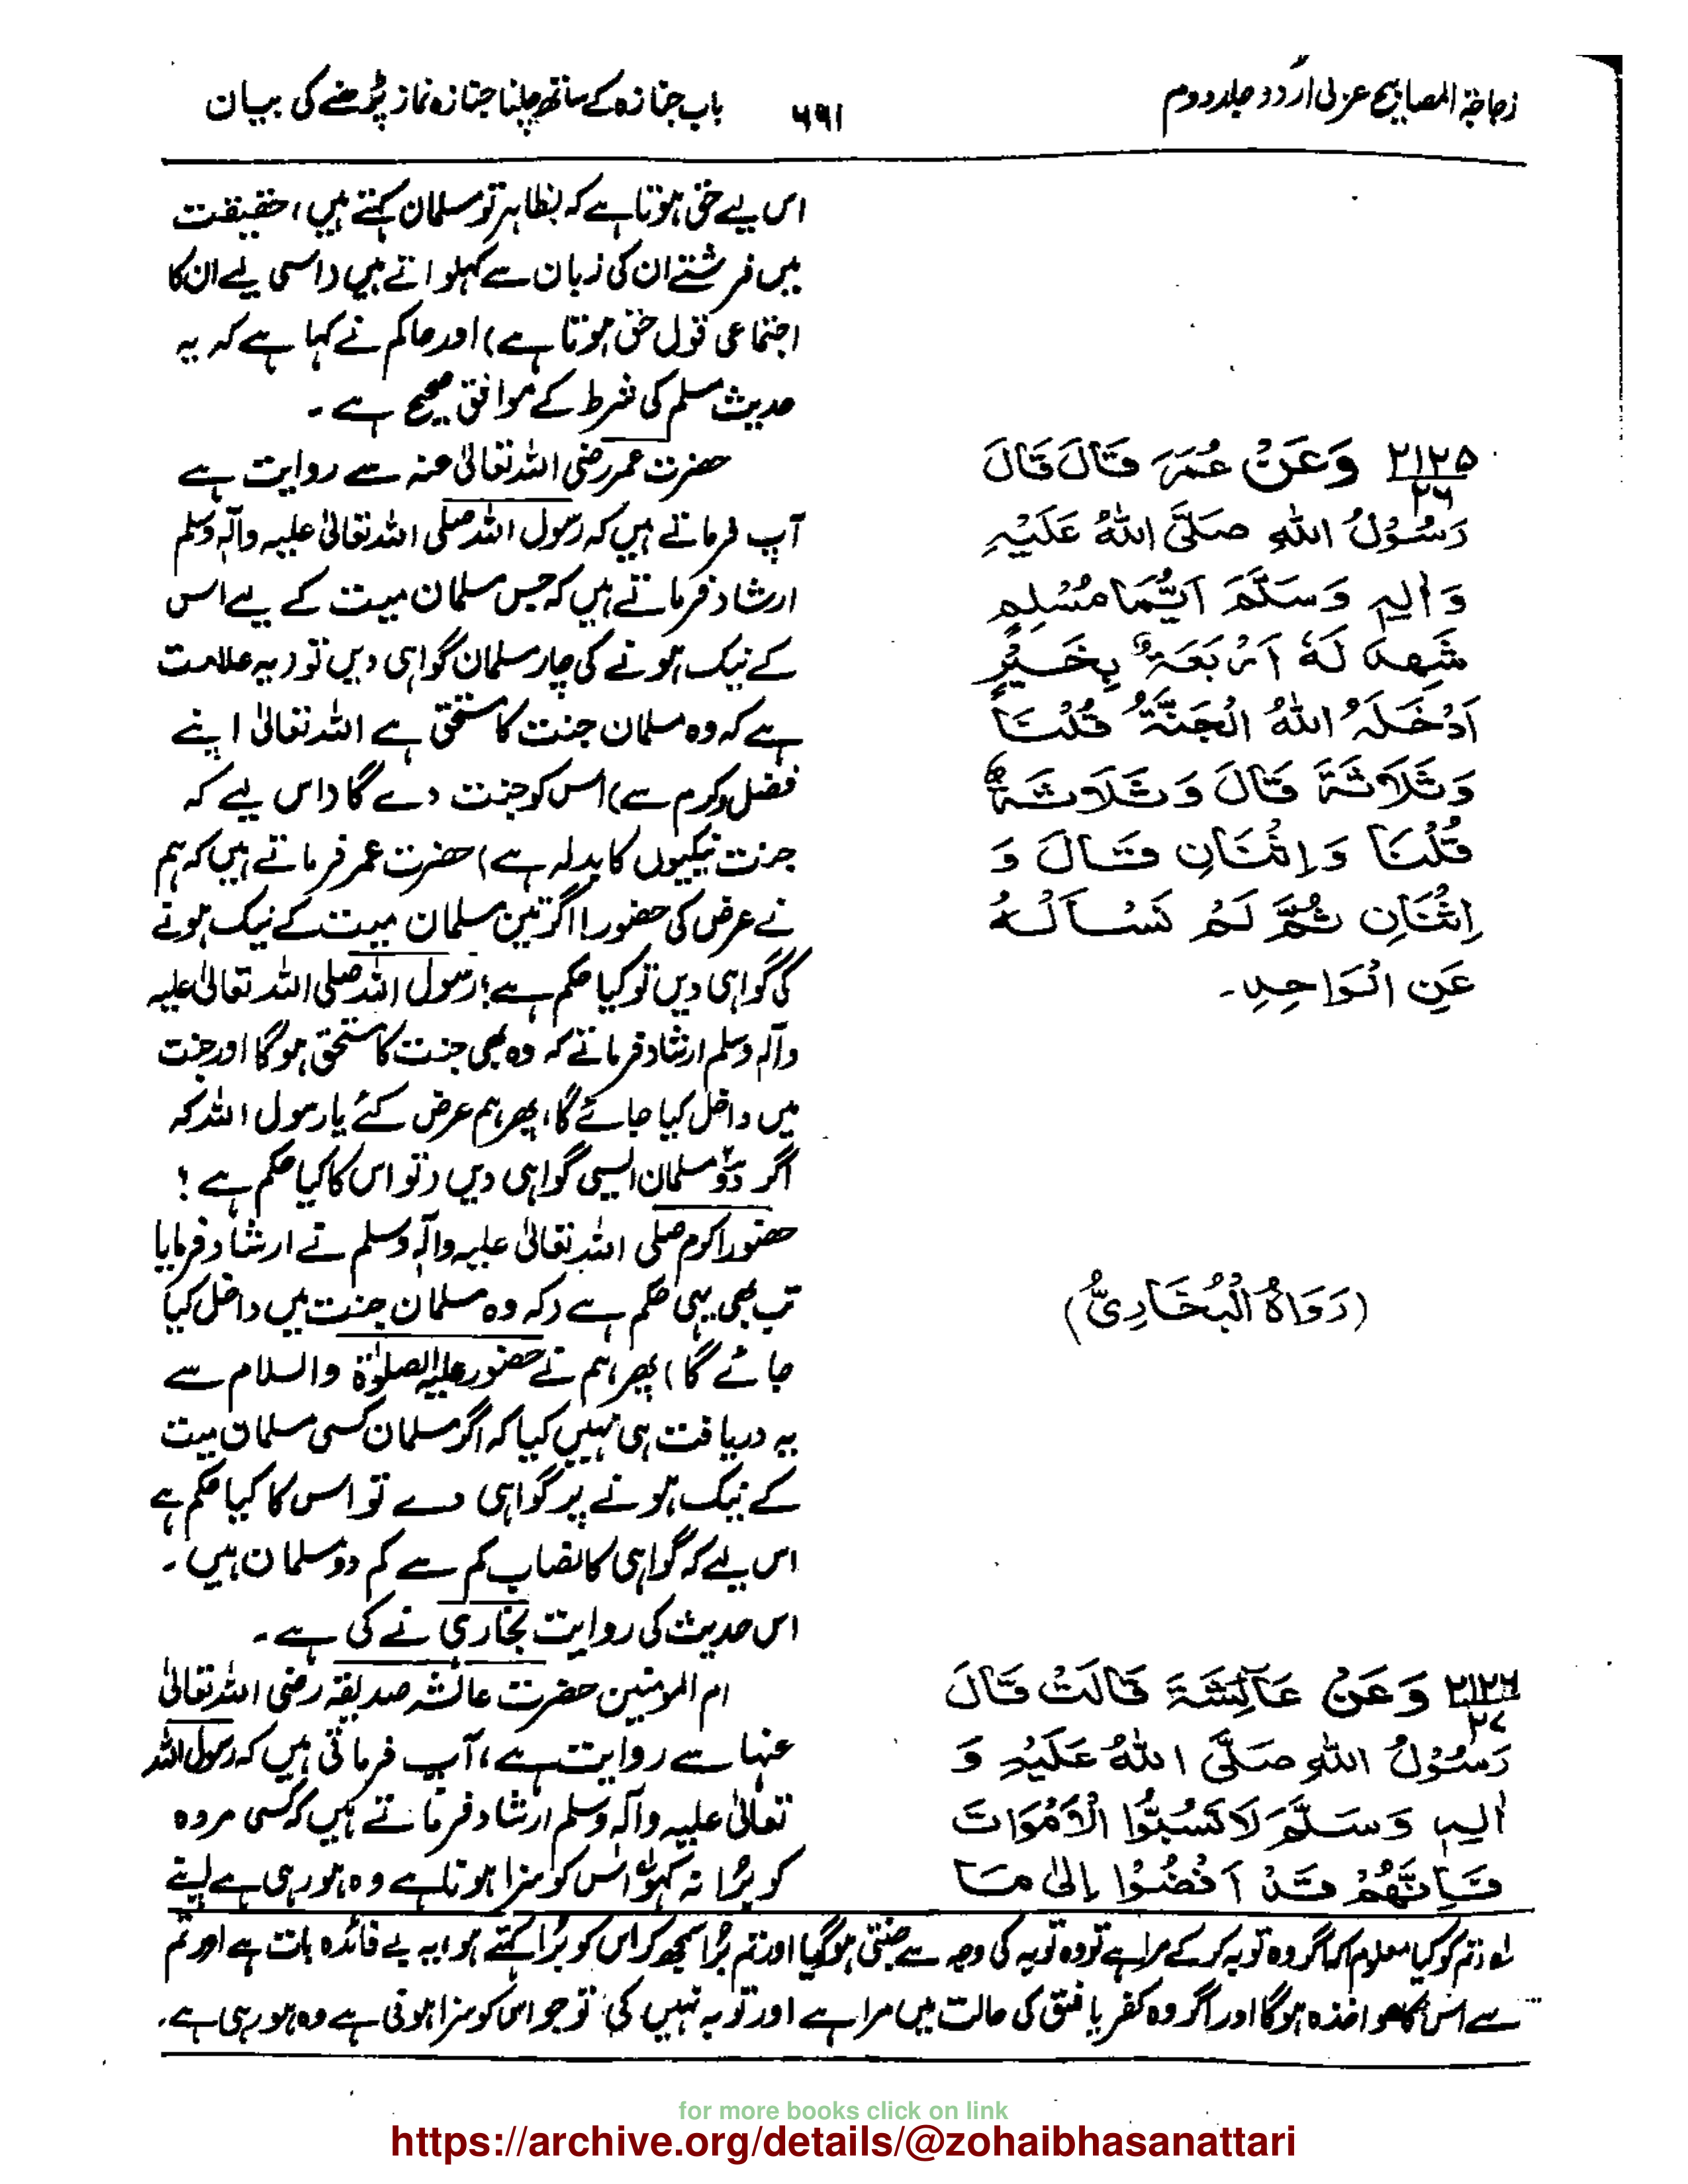 زجاجۃ المصابیح عربی اردو جلد دوم
۶۶۱
باب جنازہ کے ساتھ چلنا جنازہ نماز پڑھنے کی بیان
اس لیے حق ہوتا ہے کہ بظاہر تو مسلمان کہتے ہیں، حقیقت
میں فرشتے ان کی زبان سے کہلواتے ہیں (اسی لیے ان کا
اجتماعی قول حق ہوتا ہے) اور حاکم نے کہا ہے کہ یہ
حدیث مسلم کی شرط کے موافق صحیح ہے۔
۲۱۲۵
۲۶
وَعَنْ عُمَرَ قَالَ قَالَ
رَسُوْلُ اللهِ صَلَّى اللهُ عَلَيْهِ
وَاٰلِهٖ وَسَلَّمَ اَيُّمَا مُسْلِمٍ
شَهِدَ لَهٗ اَرْبَعَةٌ بِخَيْرٍ
اَدْخَلَهُ اللهُ الْجَنَّةَ قُلْنَا
وَثَلَاثَةَ قَالَ وَثَلَاثَةٌ
قُلْنَا وَاِثْنَانِ قَالَ وَ
اِثْنَانِ ثُمَّ لَمْ نَسْاَلْهُ
عَنِ الْوَاحِدِ۔
(رَوَاهُ الْبُخَارِيُّ)
حضرت عمر رضی اللہ تعالیٰ عنہ سے روایت ہے
آپ فرماتے ہیں کہ رسول اللہ صلی اللہ تعالیٰ علیہ وآلہ وسلم
ارشاد فرماتے ہیں کہ جس مسلمان میت کے لیے اس
کے نیک ہونے کی چار مسلمان گواہی دیں تو (یہ علامت
ہے کہ وہ مسلمان جنت کا مستحق ہے اللہ تعالیٰ اپنے
فضل وکرم سے) اس کو جنت دے گا (اس لیے کہ
جنت نیکیوں کا بدلہ ہے) حضرت عمر فرماتے ہیں کہ ہم
نے عرض کی حضور! اگر تین مسلمان میت کے نیک ہونے
کی گواہی دیں تو کیا حکم ہے؛ رسول اللہ صلی اللہ تعالیٰ علیہ
وآلہ وسلم ارشاد فرماتے کہ وہ بھی جنت کا مستحق ہوگا اور جنت
میں داخل کیا جائے گا، پھر ہم عرض کئے یا رسول اللہ کہ
اگر دو مسلمان ایسی گواہی دیں (تو اس کا کیا حکم ہے؛
حضور اکرم صلی اللہ تعالیٰ علیہ وآلہ وسلم نے ارشاد فرمایا
تب بھی یہی حکم ہے (کہ وہ مسلمان جنت میں داخل کیا
جائے گا) پھر ہم نے حضور علیہ الصلوٰۃ والسلام سے
یہ دریافت ہی نہیں کیا کہ اگر مسلمان کسی مسلمان میت
کے نیک ہونے پر گواہی دے تو اس کا کیا حکم ہے
اس لیے کہ گواہی کا نصاب کم سے کم دو مسلمان ہیں۔
اس حدیث کی روایت بخاری نے کی ہے۔
۲۱۲۶
۲۷
وَعَنْ عَآئِشَةَ قَالَتْ قَالَ
رَسُوْلُ اللهِ صَلَّى اللهُ عَلَيْهِ وَ
اٰلِهٖ وَسَلَّمَ لَا تَسُبُّوا الْاَمْوَاتَ
فَاِنَّهُمْ قَدْ اَفْضَوْا اِلٰى مَا
ام المومنین حضرت عائشہ صدیقہ رضی اللہ تعالیٰ
عنہا سے روایت ہے، آپ فرماتی ہیں کہ رسول اللہ
تعالیٰ علیہ وآلہ وسلم ارشاد فرماتے ہیں کہ کسی مردہ
کو برا نہ کہو اس کو سزا ہونا ہے وہ ہو رہی ہے اپنے
لہ (تم کو کیا معلوم کہ اگر وہ توبہ کر کے مرا ہے تو وہ توبہ کی وجہ سے جنتی ہوگیا اور تم برا سمجھ کر اس کو برا کہتے ہو، یہ بے فائدہ بات ہے اور تم
سے اس کا مواخذہ ہوگا اور اگر وہ کفر یا فسق کی حالت میں مرا ہے اور توبہ نہیں کی، تو جو اس کو سزا ہونی ہے وہ ہو رہی ہے۔
for more books click on link
https://archive.org/details/@zohaibhasanattari